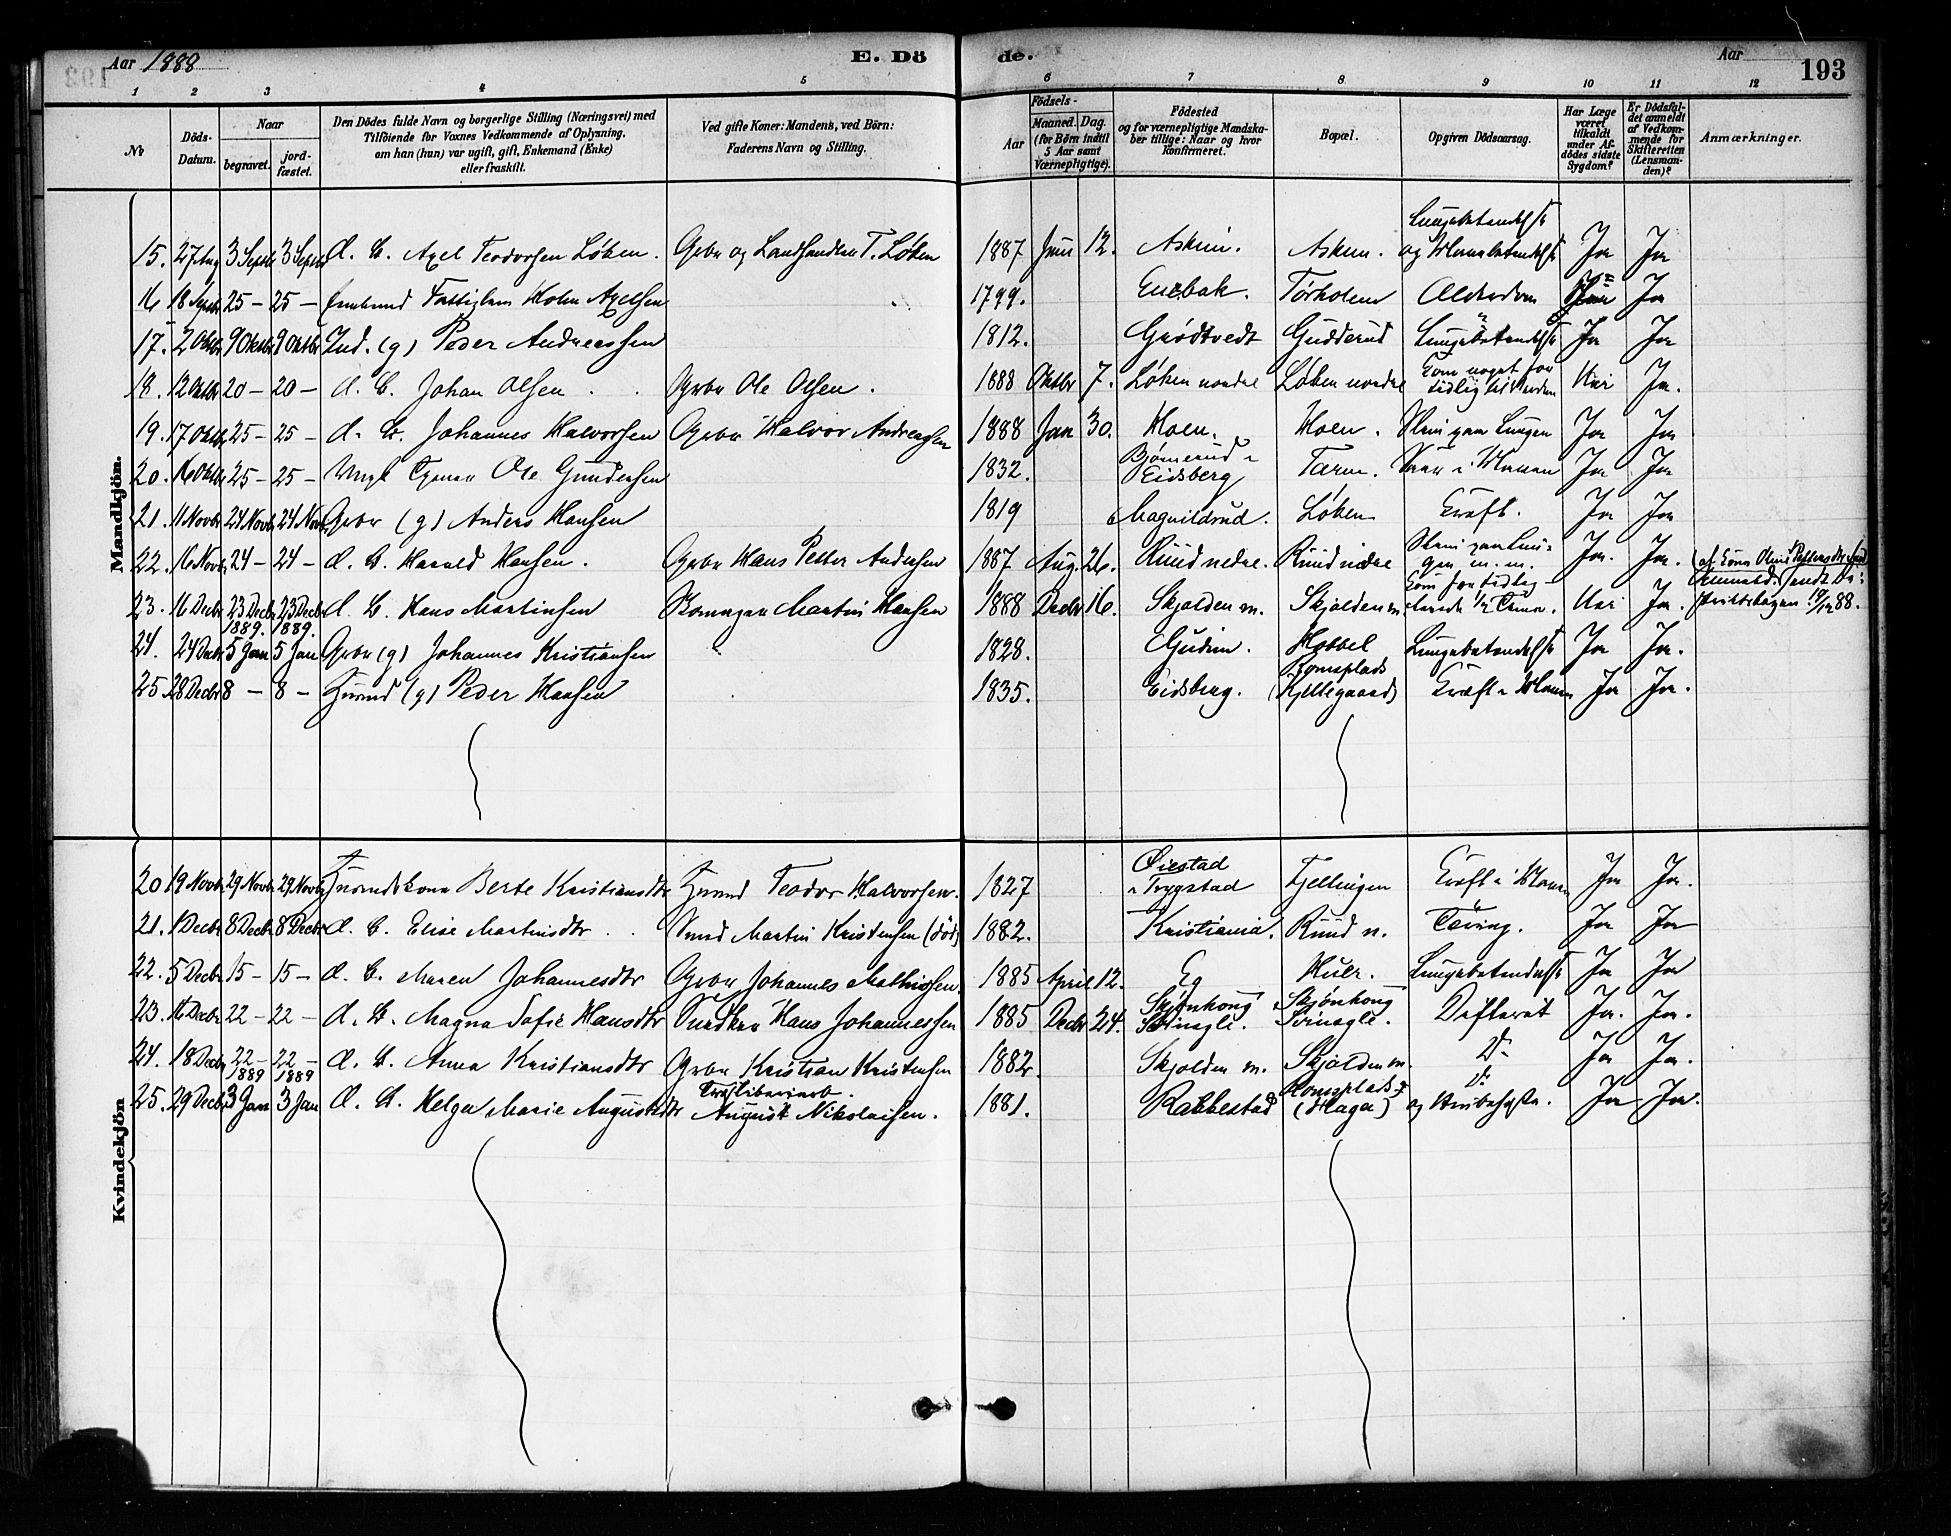 Aar 1888
E. Dö
de.
Aar
193
1 2 3 4 5 6 7 8 9 10 11 12
No
Döds-Datum.
Naar
begravet.
jord-fæstet.
Den Dödes fulde Navn og borgerlige Stilling (Næringsvei) med
Tilföiende for Voxnes Vedkommende af Oplysning,
om han (hun) var ugift, gift, Enkemand (Enke)
eller fraskilt.
Ved gifte Koner: Mandens, ved Börn:
Faderens Navn og Stilling.
Födsels-
Aar
Maaned. Dag.
(for Börn indtil
5 Aar samt
Værnepligtige).
Födested
og for værnepligtige Mandska-
ber tillige: Naar og hvor
konfirmeret.
Bopæl.
Opgiven Dödsaarsag.
Har Læge
været
tilkaldt
under Af-
dödes sidste
Sygdom?
Er Dödsfal-
det anmeldt
af Vedkom-
mende for
Skifteretten
(Lensman-
den)?
Anmærkninger.
Mandkjön.
15. 27 Aug 3 Septb 3 Septb d. B. Axel Teodorsen Løken. Grbr og Landhandler T. Løken 1887 Juni 12. Askim. Askim. Lungebetændelse og Hjernebetændelse Ja Ja
16 18 Septb 25 – 25 – Fattiglem Holm Axelsen 1799. Enebak. Tørholem Alderdom Ja
17. 2 Oktbr 9 Oktbr 9 Oktbr Ind. (g) Peder Andreassen 1812. Grødtvedt Gudderud Lungebetændelse Ja Ja
18. 12 Oktbr 20 – 20 – d. B. Johan Olsen Grbr Ole Olsen. 1888 Oktbr 7. Løken nordre Løken nordre Kom noget for tidlig til Verden Nei Ja.
19. 17 Oktbr 25 – 25 – d. B. Johannes Halvorsen Grbr Halvor Andreassen 1888 Jan 30. Moen. Moen. Slim paa Lungen Ja Ja
20. 16 Oktb 25 – 25 – Ungk Ole Gundersen 1832. Bjørnerud i Eidsberg Ja Ja
21. 11 Novbr 24 Novbr 24 Novbr Grbr (g) Anders Hansen 1819 Magnildrud. Løken Kræft. Ja Ja
22. 16 Novbr 24 – 24 – d. B. Harald Hansen. Grbr Hans Petter Andersen 1887 Aug. 26. Ruud nedre. Ruud nedre Slim paa Lungen m. m. Ja. Ja.
23. 16 Decbr 23 Decbr 23 Decbr d. B. Hans Martinsen Martin Hansen 1888 Decbr 16. Skjolden m. Skjolden m. Kom for tidlig Nei Ja. 19/12 88.
1889. 1889.
24. 24 Decbr 5 Jan 5 Jan Grbr (g) Johannes Kristiansen 1828. Gudim. Hobbel Lungebetændelse Ja Ja.
25. 28 Decbr 8 – 8 – Husmd (g) Peder Hansen 1835. Eidsberg. Romsplads (Kjeltegaard) Kræft i Maven Ja Ja.
Kvindekjön
20 19 Novbr 29 Novbr 29 Novbr Husmdskone Berte Kristiansdtr Husmd Teodor Halvorsen. 1827 Øiestad i Trygstad Fjellingen Kræft i Maven Ja Ja.
21. 1 Decbr 8 Decbr 8 Decbr d. B. Elise Martinsdtr Smed Martin Kristensen (død) 1882. Kristiania. Ruud n. Tæring. Ja Ja
22. 5 Decbr 15 – 15 – d. B. Maren Johannesdtr Grbr Johannes Mathisen 1885 April 12. Eg Huer. Lungebetændelse Ja Ja
23. 16 Decbr 22 – 22 – d. B. Magna Sofie Hansdtr Snedker Hans Johannessen 1885 Decbr 24. Skjønhoug Svinegle. Skjønhoug Svinegle. Difterit Ja. Ja.
24. 18 Decbr 22 – 22 – d. B. Anna Kristiansdtr Grbr Kristian Kristensen 1882. Skjolden m. Skjolden m. Do Ja Ja.
1889 1889
25. 29 Decbr 3 Jan 3 Jan d. B. Helga Marie Augustdtr Træsliberiarb. August Nikolaisen. 1881. Rakkestad Romsplads (Haga) Do og Ja Ja.